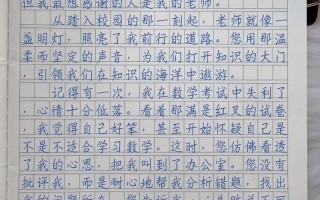 但我最想感谢的人是我的老师。
从踏入校园的那一刻起，老师就像一
盏明灯，照亮了我前行的道路。您用那温
柔而坚定的声音，为我们打开知识的大门
，引领我们在知识的海洋中遨游。
记得有一次，我在数学考试中失利了
，心情十分低落。看着那满是红叉的试卷
，我觉得自己好笨，甚至开始怀疑自己是
不是不适合学习数学。这时，您仿佛看透
了我的心思，把我叫到了办公室。您没有
批评我，而是耐心地帮我分析错题，找出